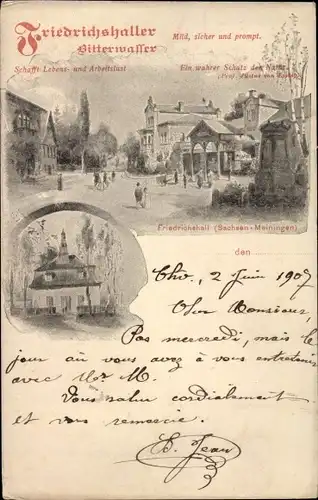 Friedrichshaller
Bitterwasser
Mild, sicher und prompt.
Schafft Lebens- und Arbeitslust
Ein wahrer Schatz der Natur
(Prof. Justus von Liebig)
Friedrichshall (Sachsen-Meiningen)
den
2 Juin 1907
Monsieur,
Pas mercredi, mais le
jour où vous avez à vous entretenir
avec Mr M.
Vous salue cordialement
et vous remercie.
Jean